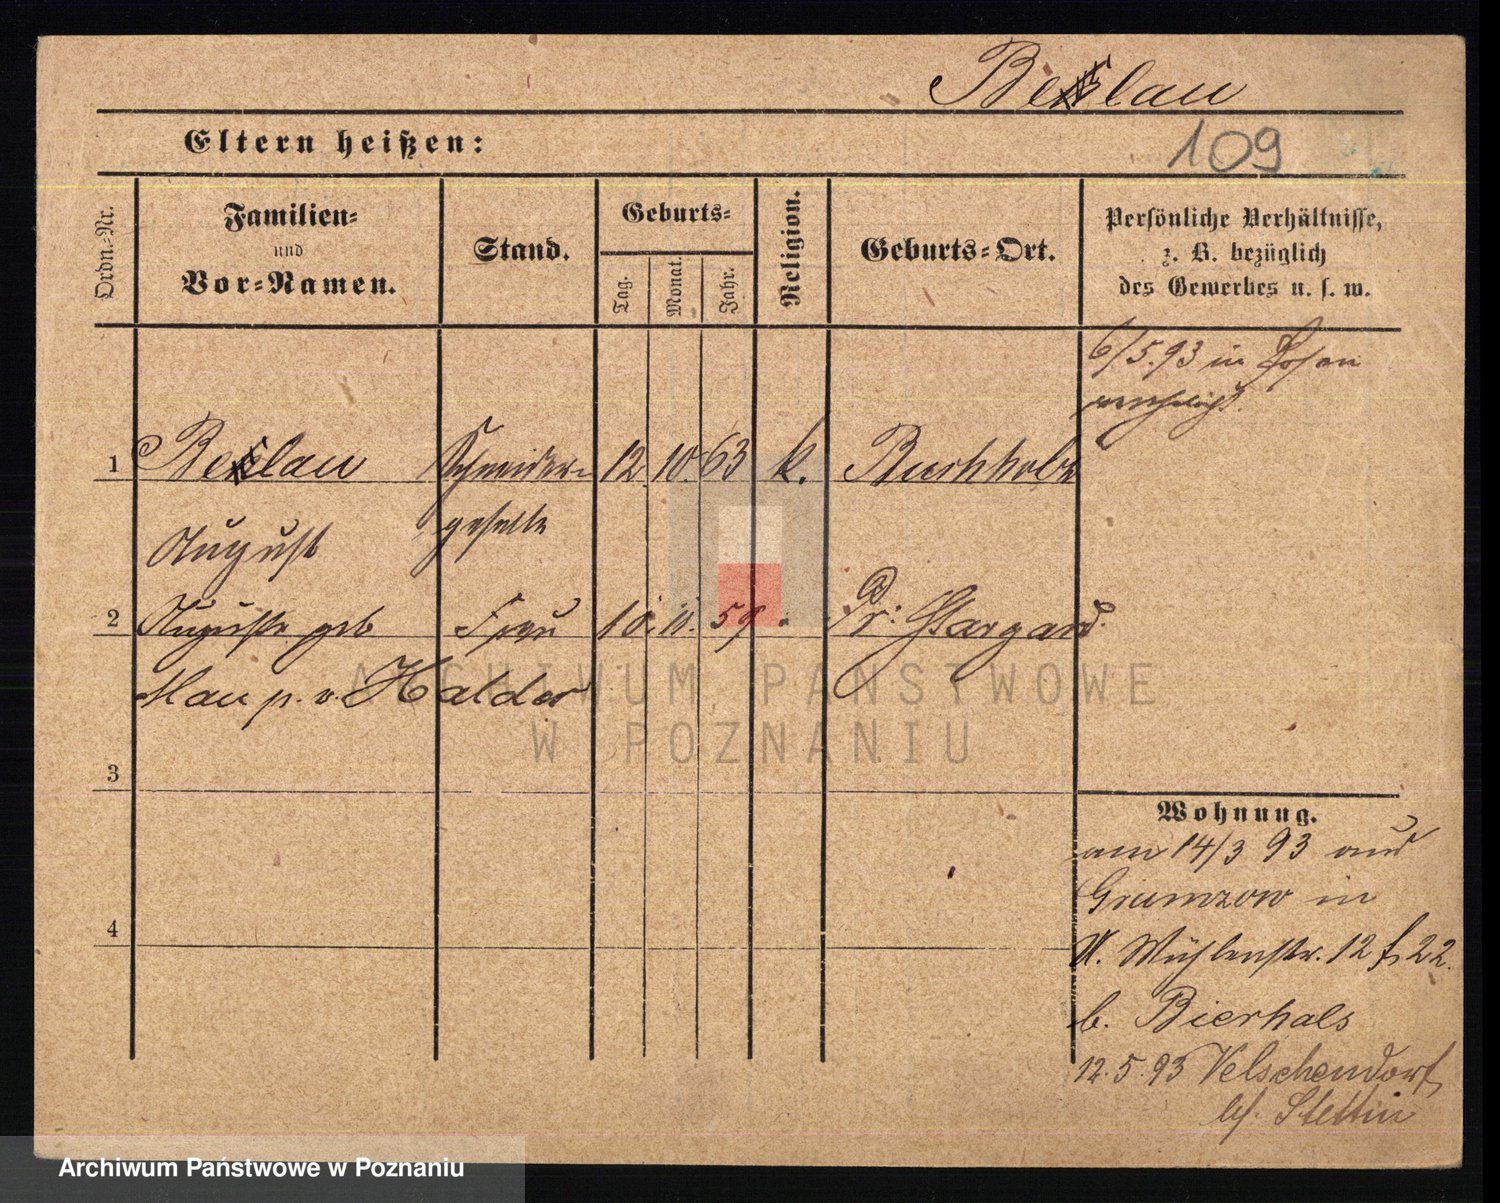 Beslau
Eltern heißen:
109
Ordn.-Nr.
Familien-
und
Vor-Namen.
Stand.
Geburts-
Tag.
Monat.
Jahr.
Religion.
Geburts-Ort.
Persönliche Verhältnisse,
z. B. bezüglich
des Gewerbes u. s. w.
6/5.93 in Posen
verehelicht.
1 Beslau Schneider- 12. 10. 63 k. Buchholz
August geselle
2 Auguste geb Frau 10. 11. 59 Pr: Stargard.
Mau p. v. Halder
3
Wohnung.
am 14/3 93 aus
Grumzow in
4
U. Mühlenstr. 12 f 22.
b. Bierhals
12.5.93 Velschendorf
bei Stettin
ARCHIWUM PAŃSTWOWE
W POZNANIU
Archiwum Państwowe w Poznaniu